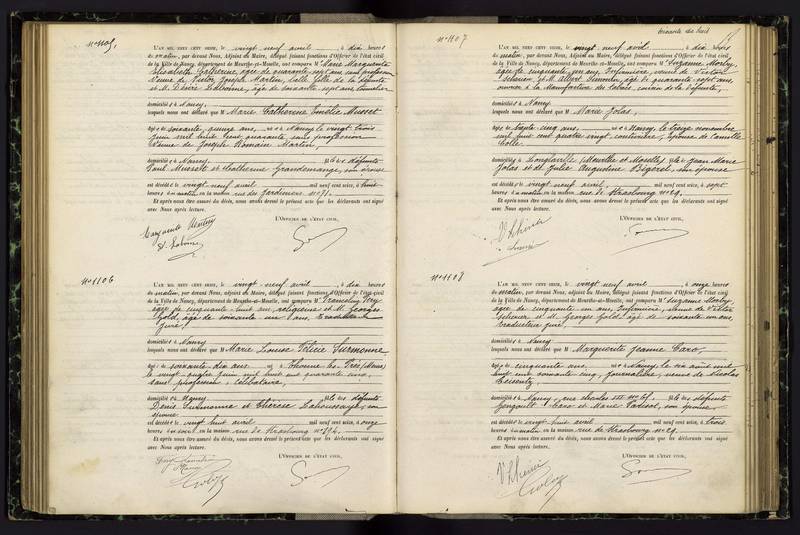 N° 1105
L'AN MIL NEUF CENT SEIZE, le vingt neuf avril, à dix heures
du matin, par devant Nous, Adjoint au Maire, délégué faisant fonctions d'Officier de l'état civil
de la Ville de Nancy, département de Meurthe-et-Moselle, ont comparu Me Marie Marguerite
Elisabeth Catherine, âgée de quarante sept ans, sans profession
veuve de Victor Joseph Martin, belle fille de la défunte
et M. Désiré Labonne, âgé de soixante sept ans, tonnelier
domiciliés à Nancy,
lesquels nous ont déclaré que Marie Catherine Emélie Mussot
âgée de soixante quinze ans, née à Nancy le vingt trois
juin mil huit cent quarante, sans profession
veuve de Joseph Romain Martin,
domiciliée à Nancy, fille des défunts
Paul Mussot et Catherine Grandemange, son épouse
est décédée le vingt neuf avril mil neuf cent seize, à trois
heures du matin en la maison rue des Jardiniers n° 71
Et après nous être assuré du décès, nous avons dressé le présent acte que les déclarants ont signé
avec Nous après lecture.
L'OFFICIER DE L'ÉTAT CIVIL,
Marguerite Martin
D. Labonne
N° 1106
L'AN MIL NEUF CENT SEIZE, le vingt neuf avril, à dix heures
du matin, par devant Nous, Adjoint au Maire, délégué faisant fonctions d'Officier de l'état civil
de la Ville de Nancy, département de Meurthe-et-Moselle, ont comparu Me
âgée de cinquante huit ans, religieuse et M. Georges
Golz, âgé de soixante un ans, traducteur
juré,
domiciliés à Nancy
lesquels nous ont déclaré que Marie Louise Félicie Surmonne
âgée de soixante dix ans née à Thonne les Prés (Meuse)
le vingt quatre juin mil huit cent quarante cinq,
sans profession, célibataire,
domiciliée à Nancy fille des défunts
Denis Surmonne et Thérèse, son
épouse
est décédée le vingt huit avril mil neuf cent seize, à onze
heures du soir en la maison rue de Strasbourg n° 194
Et après nous être assuré du décès, nous avons dressé le présent acte que les déclarants ont signé
avec Nous après lecture.
L'OFFICIER DE L'ÉTAT CIVIL,
soixante dix huit
N° 1107
L'AN MIL NEUF CENT SEIZE, le vingt neuf avril, à dix heures
du matin, par devant Nous, Adjoint au Maire, délégué faisant fonctions d'Officier de l'état civil
de la Ville de Nancy, département de Meurthe-et-Moselle, ont comparu Me Suzanne Morby,
âgée de cinquante un ans, infirmière, veuve de Victor
Scherrer et M. Albert, âgé de quarante sept ans,
ouvrier à la Manufacture des tabacs, cousin de la défunte,
domiciliés à Nancy
lesquels nous ont déclaré que Marie Jolas,
âgée de trente cinq ans, née à Nancy, le treize novembre
mil huit cent quatre vingt, couturière, épouse de Camille
Colle
domiciliée à Longlaville (Meurthe et Moselle) fille de Jean Marie
Jolas et de Julie Augustine Bégerel, son épouse
est décédée le vingt neuf avril mil neuf cent seize, à sept
heures du matin en la maison rue de Strasbourg n° 29
Et après nous être assuré du décès, nous avons dressé le présent acte que les déclarants ont signé
avec Nous après lecture.
L'OFFICIER DE L'ÉTAT CIVIL,
N° 1108
L'AN MIL NEUF CENT SEIZE, le vingt neuf avril, à onze heures
du matin, par devant Nous, Adjoint au Maire, délégué faisant fonctions d'Officier de l'état civil
de la Ville de Nancy, département de Meurthe-et-Moselle, ont comparu Me Suzanne Morby,
âgée de cinquante un ans, infirmière, veuve de Victor
Scherrer et M. Georges Golz, âgé de soixante un ans,
traducteur juré,
domiciliés à Nancy
lesquels nous ont déclaré que Marguerite Jeanne Caro,
âgée de cinquante ans, née à Nancy, le six août mil
huit cent soixante cinq, journalière, veuve de Nicolas
domiciliée à Nancy, rue Charles III n°, fille des défunts
Gengoult Caro et Marie, son épouse
est décédée le vingt huit avril mil neuf cent seize, à trois
heures du matin en la maison rue de Strasbourg n° 29
Et après nous être assuré du décès, nous avons dressé le présent acte que les déclarants ont signé
avec Nous après lecture.
L'OFFICIER DE L'ÉTAT CIVIL,